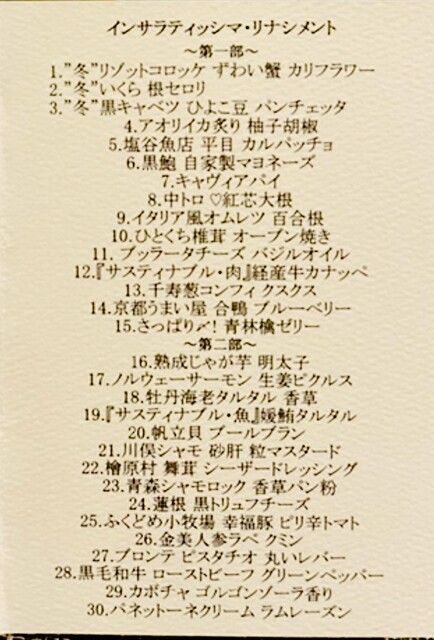 インサラティッシマ・リナシメント
～第一部～
1.”冬”リゾットコロッケ ずわい蟹 カリフラワー
2.”冬”いくら 根セロリ
3.”冬”黒キャベツ ひよこ豆 パンチェッタ
4.アオリイカ炙り 柚子胡椒
5.塩谷魚店 平目 カルパッチョ
6.黒鮑 自家製マヨネーズ
7.キャヴィアパイ
8.中トロ ♡紅芯大根
9.イタリア風オムレツ 百合根
10.ひとくち椎茸 オーブン焼き
11. ブッラータチーズ バジルオイル
12.『サスティナブル・肉』経産牛カナッペ
13.千寿葱コンフィ クスクス
14.京都うまい屋 合鴨 ブルーベリー
15.さっぱり〆! 青林檎ゼリー
～第二部～
16.熟成じゃが芋 明太子
17.ノルウェーサーモン 生姜ピクルス
18.牡丹海老タルタル 香草
19.『サスティナブル・魚』媛鮪タルタル
20.帆立貝 ブールブラン
21.川俣シャモ 砂肝 粒マスタード
22.檜原村 舞茸 シーザードレッシング
23.青森シャモロック 香草パン粉
24.蓮根 黒トリュフチーズ
25.ふくどめ小牧場 幸福豚 ピリ辛トマト
26.金美人参ラペ クミン
27.ブロンテ ピスタチオ 丸いレバー
28.黒毛和牛 ローストビーフ グリーンペッパー
29.カボチャ ゴルゴンゾーラ香り
30.パネットーネクリーム ラムレーズン